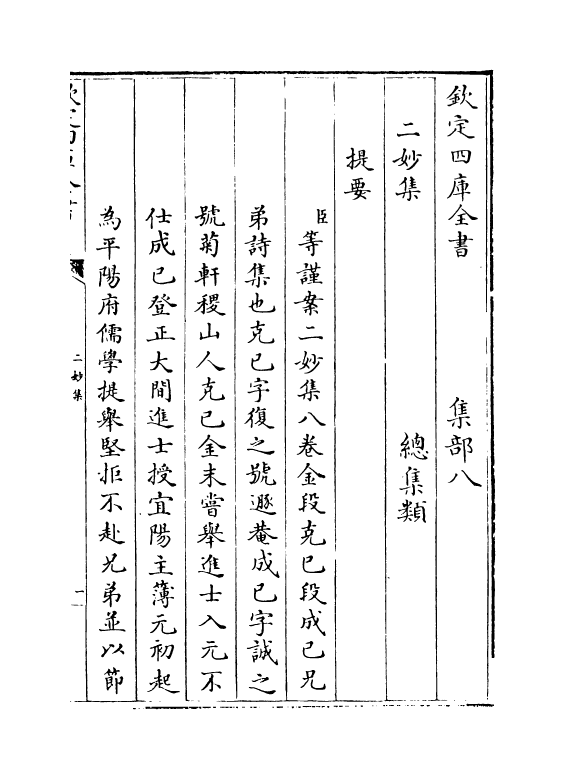 欽定四庫全書　集部八
二妙集　總集類
提要
臣等謹案二妙集八卷金段克已段成已兄
弟詩集也克已字復之號遯菴成已字誠之
號菊軒稷山人克已金末嘗舉進士入元不
仕成已登正大間進士授宜陽主簿元初起
為平陽府儒學提舉堅拒不赴兄弟並以節
二妙集
一